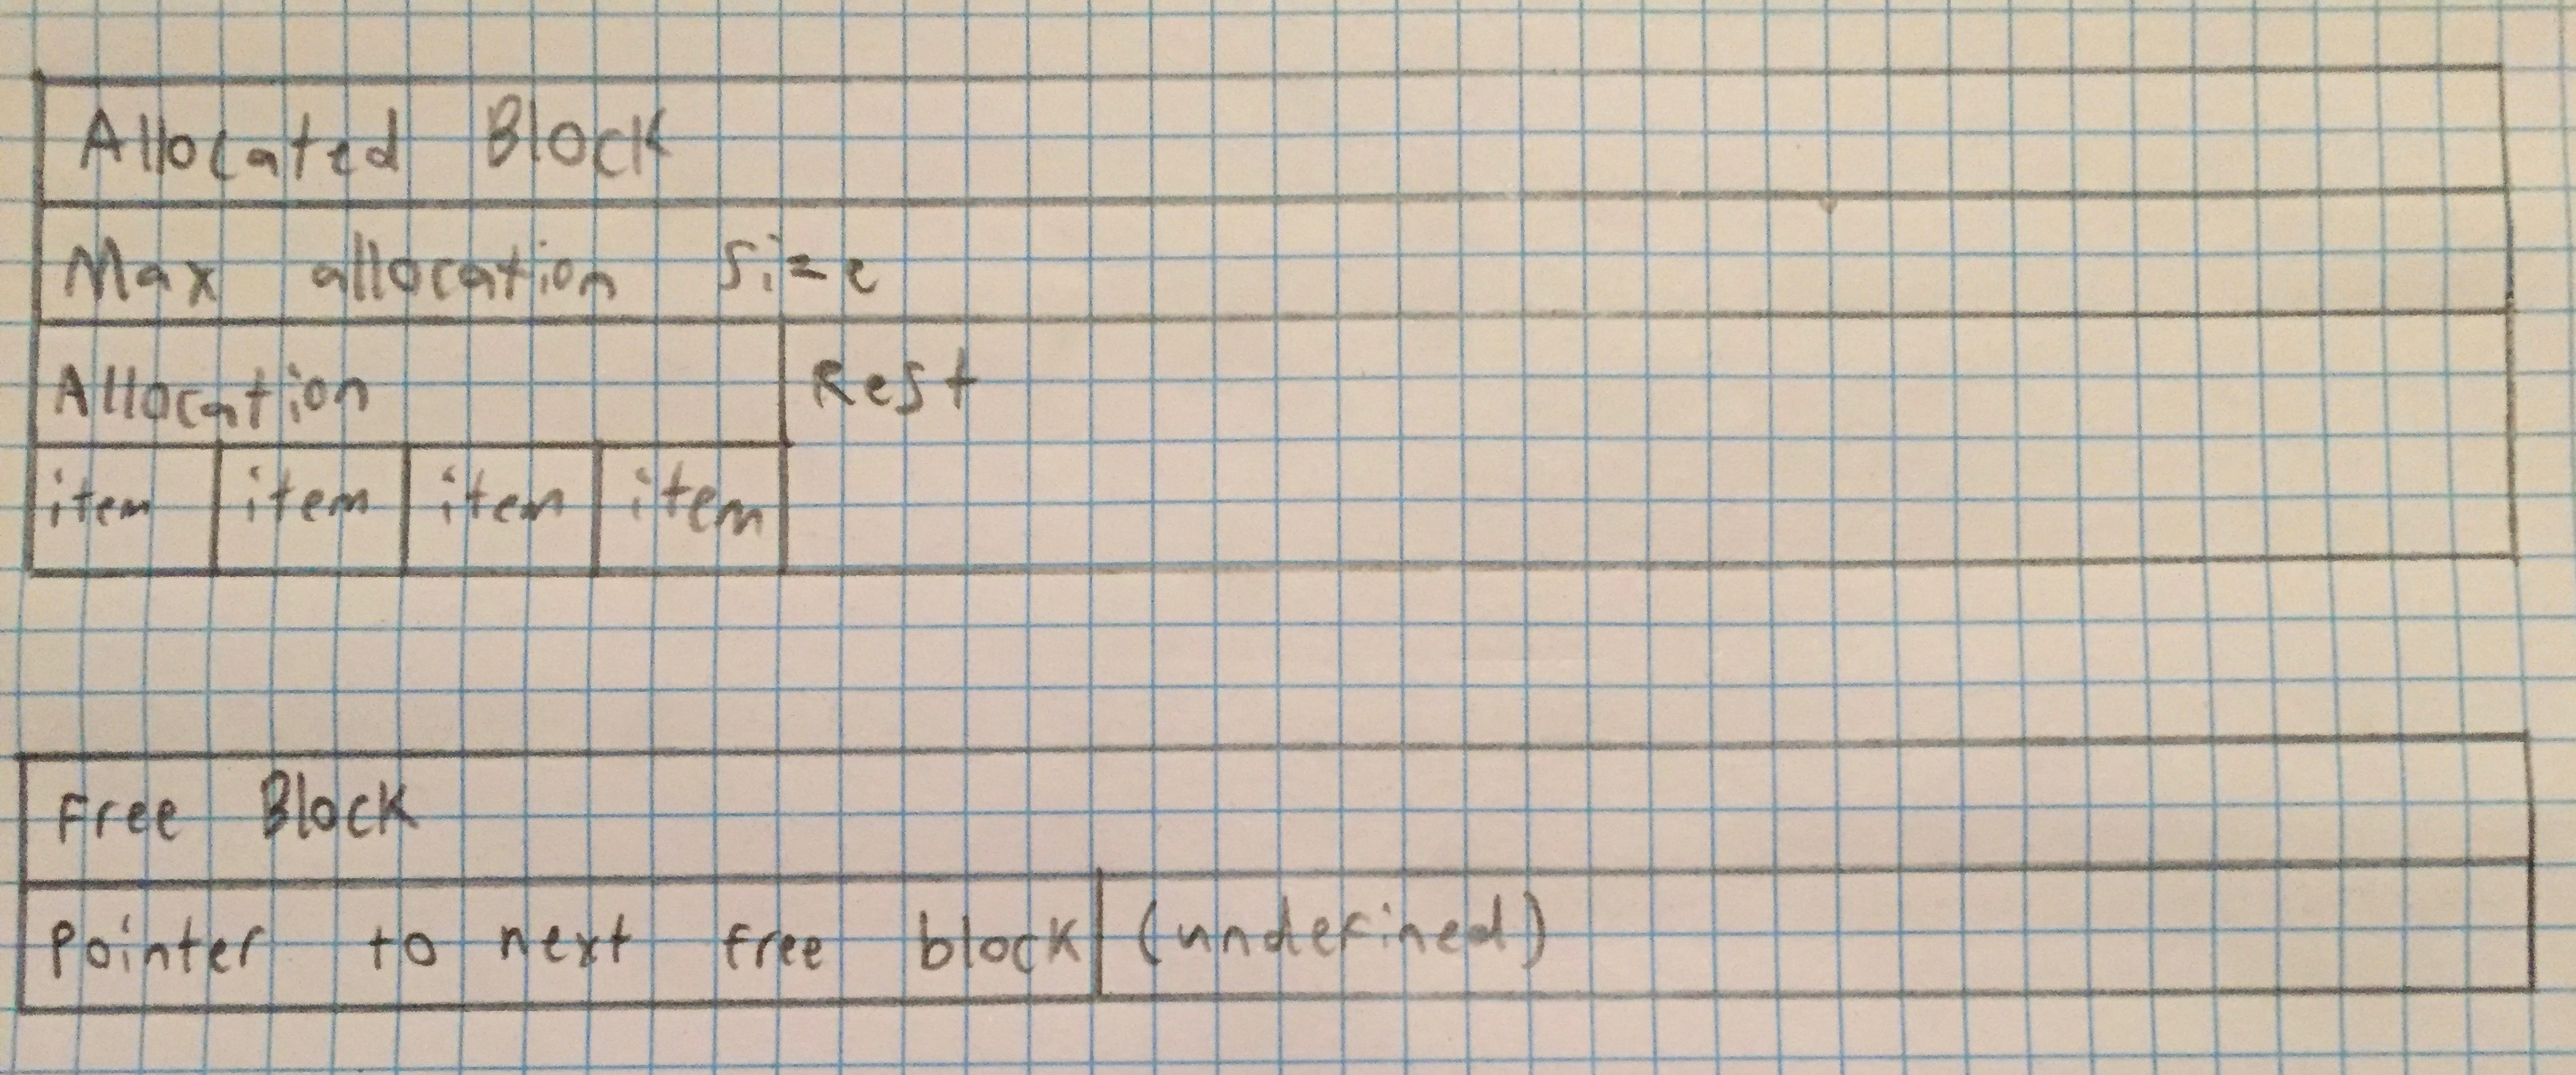 Allocated Block
Max allocation size
Allocation Rest
item item item item
Free Block
Pointer to next free block (undefined)